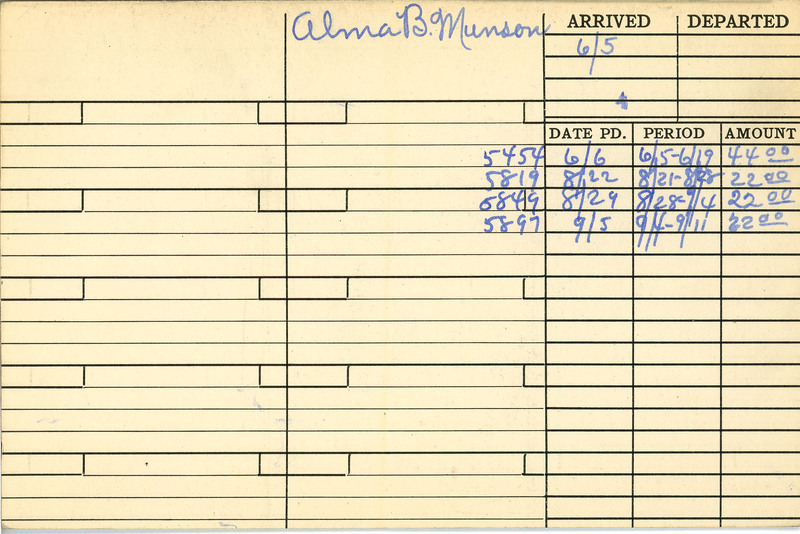 Alma B. Munson
ARRIVED DEPARTED
6/5
DATE PD. PERIOD AMOUNT
5454 6/6 6/5-6/19 44 00
5819 8/22 8/21-8/28 22 00
5849 8/29 8/28-9/4 22 00
5897 9/5 9/4-9/11 22 00